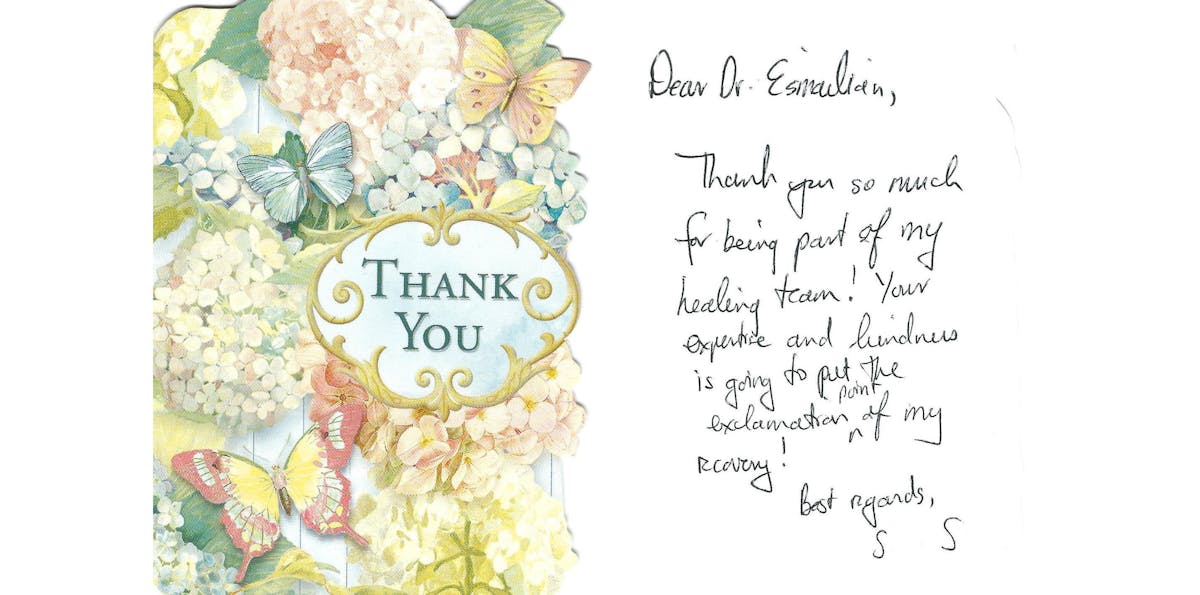 THANK
YOU
Dear Dr. Esmailian,
Thank you so much
for being part of my
healing team! Your
expertise and kindness
is going to put the
point
exclamation ^ of my
recovery!
Best regards,
S S